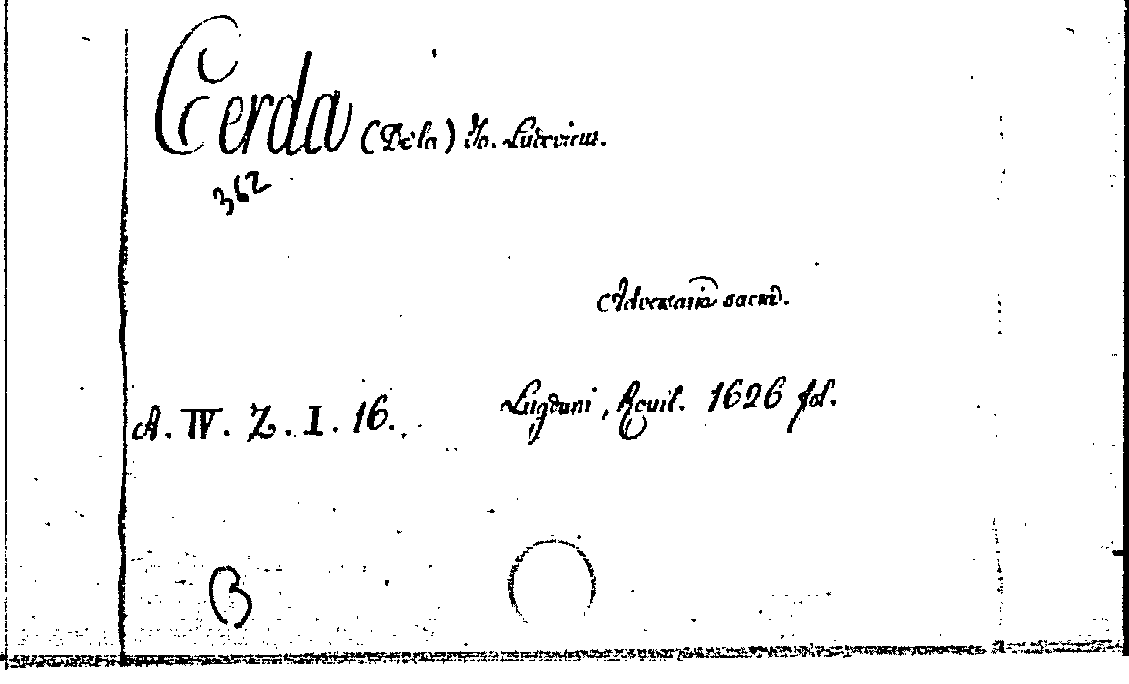 Cerda (De la) Jo. Ludovicus.
362
Adversaria sacra.
A. IV. Z. I. 16. Lugduni, Rouil. 1626 fol.
B